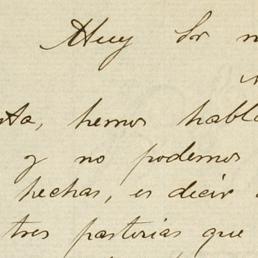 Muy Sr m
sta, hemos habla
y no podemos
hechas, es decir
tres pastorias que